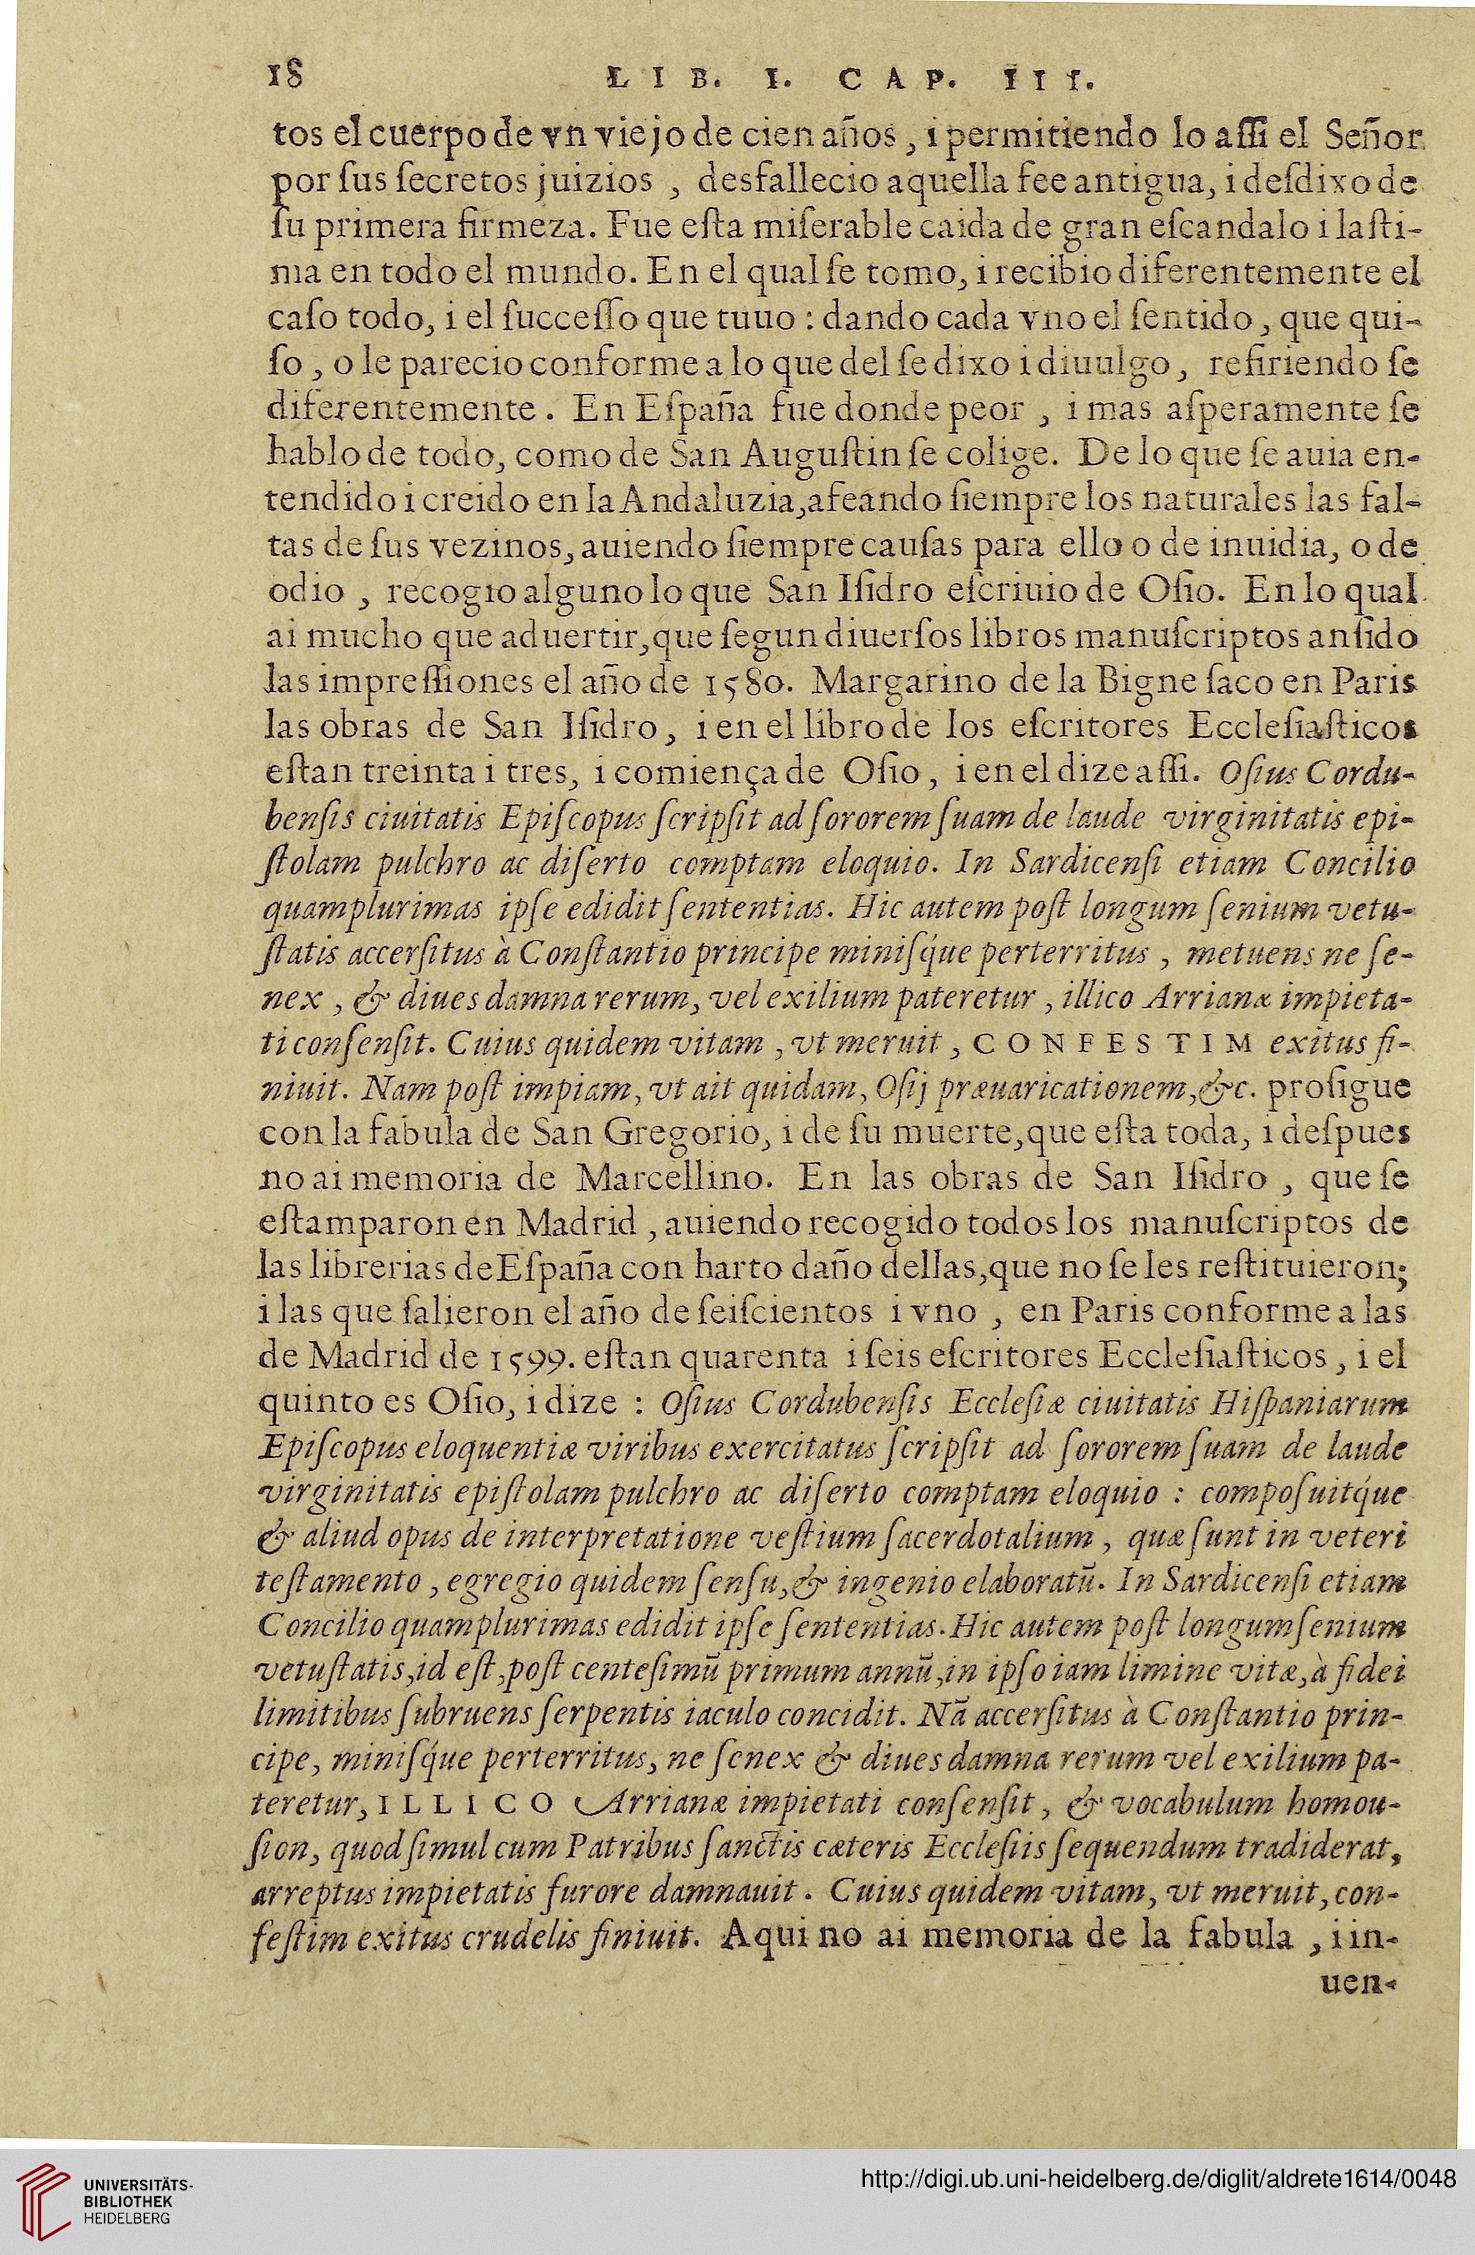 18 LIB. I. CAP. III.
tos el cuerpo de vn viejo de cien años, i permitiendo lo aſſi el Señor
por ſus ſecretos juizios, desfallecio aquella fee antigua, i deſdixo de
ſu primera firmeza. Fue eſta miſerable caida de gran eſcandalo i laſti-
ma en todo el mundo. En el qual ſe tomo, i recibio diferentemente el
caſo todo, i el ſucceſſo que tuuo: dando cada vno el ſentido, que qui-
ſo, o le parecio conforme a lo que del ſe dixo i diuulgo, refiriendo ſe
diferentemente. En Eſpaña fue donde peor, i mas aſperamente ſe
hablo de todo, como de San Auguſtin ſe colige. De lo que ſe auia en-
tendido i creido en la Andaluzia, afeando ſiempre los naturales las fal-
tas de ſus vezinos, auiendo ſiempre cauſas para ello o de inuidia, o de
odio, recogio alguno lo que San Iſidro eſcriuio de Oſio. En lo qual
ai mucho que aduertir, que ſegun diuerſos libros manuſcriptos an ſido
las impreſſiones el año de 1580. Margarino de la Bigne ſaco en Paris
las obras de San Iſidro, i en el libro de los eſcritores Eccleſiaſticos
eſtan treinta i tres, i comiença de Oſio, i en el dize aſſi. Oſius Cordu-
benſis ciuitatis Epiſcopus ſcripſit ad ſororem ſuam de laude virginitatis epi-
ſtolam pulchro ac diſerto comptam eloquio. In Sardicenſi etiam Concilio
quamplurimas ipſe edidit ſententias. Hic autem poſt longum ſenium vetu-
ſtatis accerſitus à Conſtantio principe miniſq́ue perterritus, metuens ne ſe-
nex, & diues damna rerum, vel exilium pateretur, illico Arrianæ impieta-
ti conſenſit. Cuius quidem vitam, vt meruit, CONFESTIM exitus fi-
niuit. Nam poſt impiam, vt ait quidam, Oſij præuaricationem, &c. proſigue
con la fabula de San Gregorio, i de ſu muerte, que eſta toda, i deſpues
no ai memoria de Marcellino. En las obras de San Iſidro, que ſe
eſtamparon en Madrid, auiendo recogido todos los manuſcriptos de
las librerias de Eſpaña con harto daño dellas, que no ſe les reſtituieron;
i las que ſalieron el año de ſeiſcientos i vno, en Paris conforme a las
de Madrid de 1599. eſtan quarenta i ſeis eſcritores Eccleſiaſticos, i el
quinto es Oſio, i dize: Oſius Cordubenſis Eccleſiæ ciuitatis Hiſpaniarum
Epiſcopus eloquentiæ viribus exercitatus ſcripſit ad ſororem ſuam de laude
virginitatis epiſtolam pulchro ac diſerto comptam eloquio: compoſuitq́ue
& aliud opus de interpretatione veſtium ſacerdotalium, quæ ſunt in veteri
teſtamento, egregio quidem ſenſu, & ingenio elaboratū. In Sardicenſi etiam
Concilio quamplurimas edidit ipſe ſententias. Hic autem poſt longum ſenium
vetuſtatis, id eſt, poſt centeſimū primum annū, in ipſo iam limine vitæ, à fidei
limitibus ſubruens ſerpentis iaculo concidit. Nā accerſitus à Conſtantio prin-
cipe, miniſq́ue perterritus, ne ſenex & diues damna rerum vel exilium pa-
teretur, ILLICO Arrianæ impietati conſenſit, & vocabulum homou-
ſion, quod ſimul cum Patribus ſanctis cæteris Eccleſiis ſequendum tradiderat,
arreptus impietatis furore damnauit. Cuius quidem vitam, vt meruit, con-
feſtim exitus crudelis finiuit. Aqui no ai memoria de la fabula, i in-
uen-
UNIVERSITÄTS-
BIBLIOTHEK
HEIDELBERG
http://digi.ub.uni-heidelberg.de/diglit/aldrete1614/0048